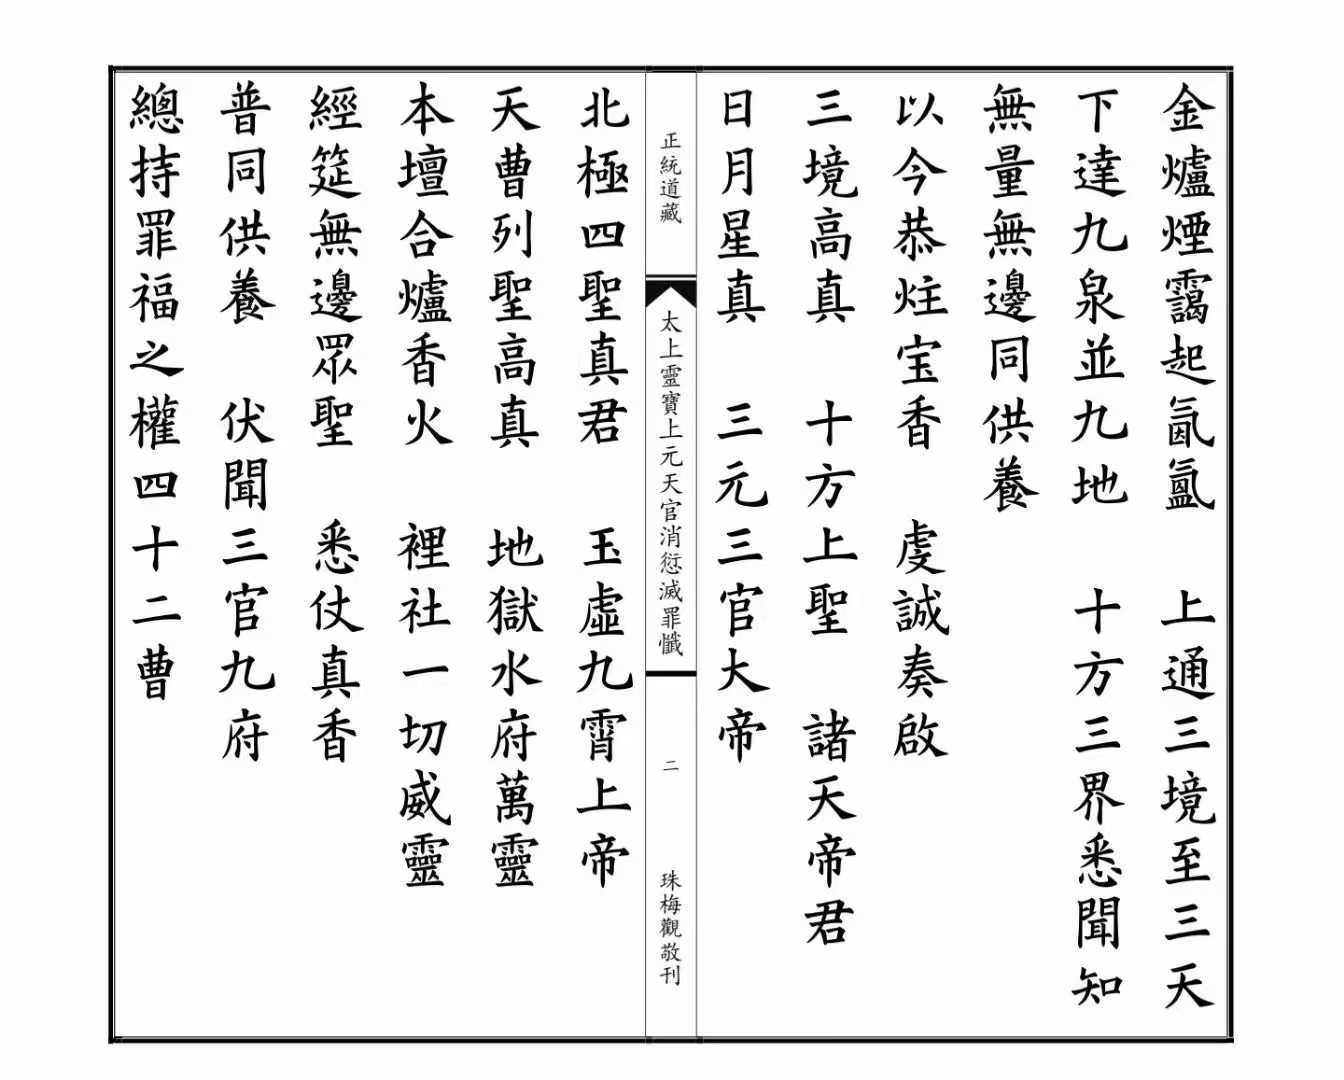 金爐煙靄起氤氳　上通三境至三天
下達九泉並九地　十方三界悉聞知
無量無邊同供養
以今恭炷宝香　虔誠奏啟
三境高真　十方上聖　諸天帝君
日月星真　三元三官大帝
正統道藏
太上靈寶上元天官消愆滅罪懺
二
珠梅觀敬刊
北極四聖真君　玉虛九霄上帝
天曹列聖高真　地獄水府萬靈
本壇合爐香火　裡社一切威靈
經筵無邊眾聖　悉仗真香
普同供養　伏聞三官九府
總持罪福之權四十二曹